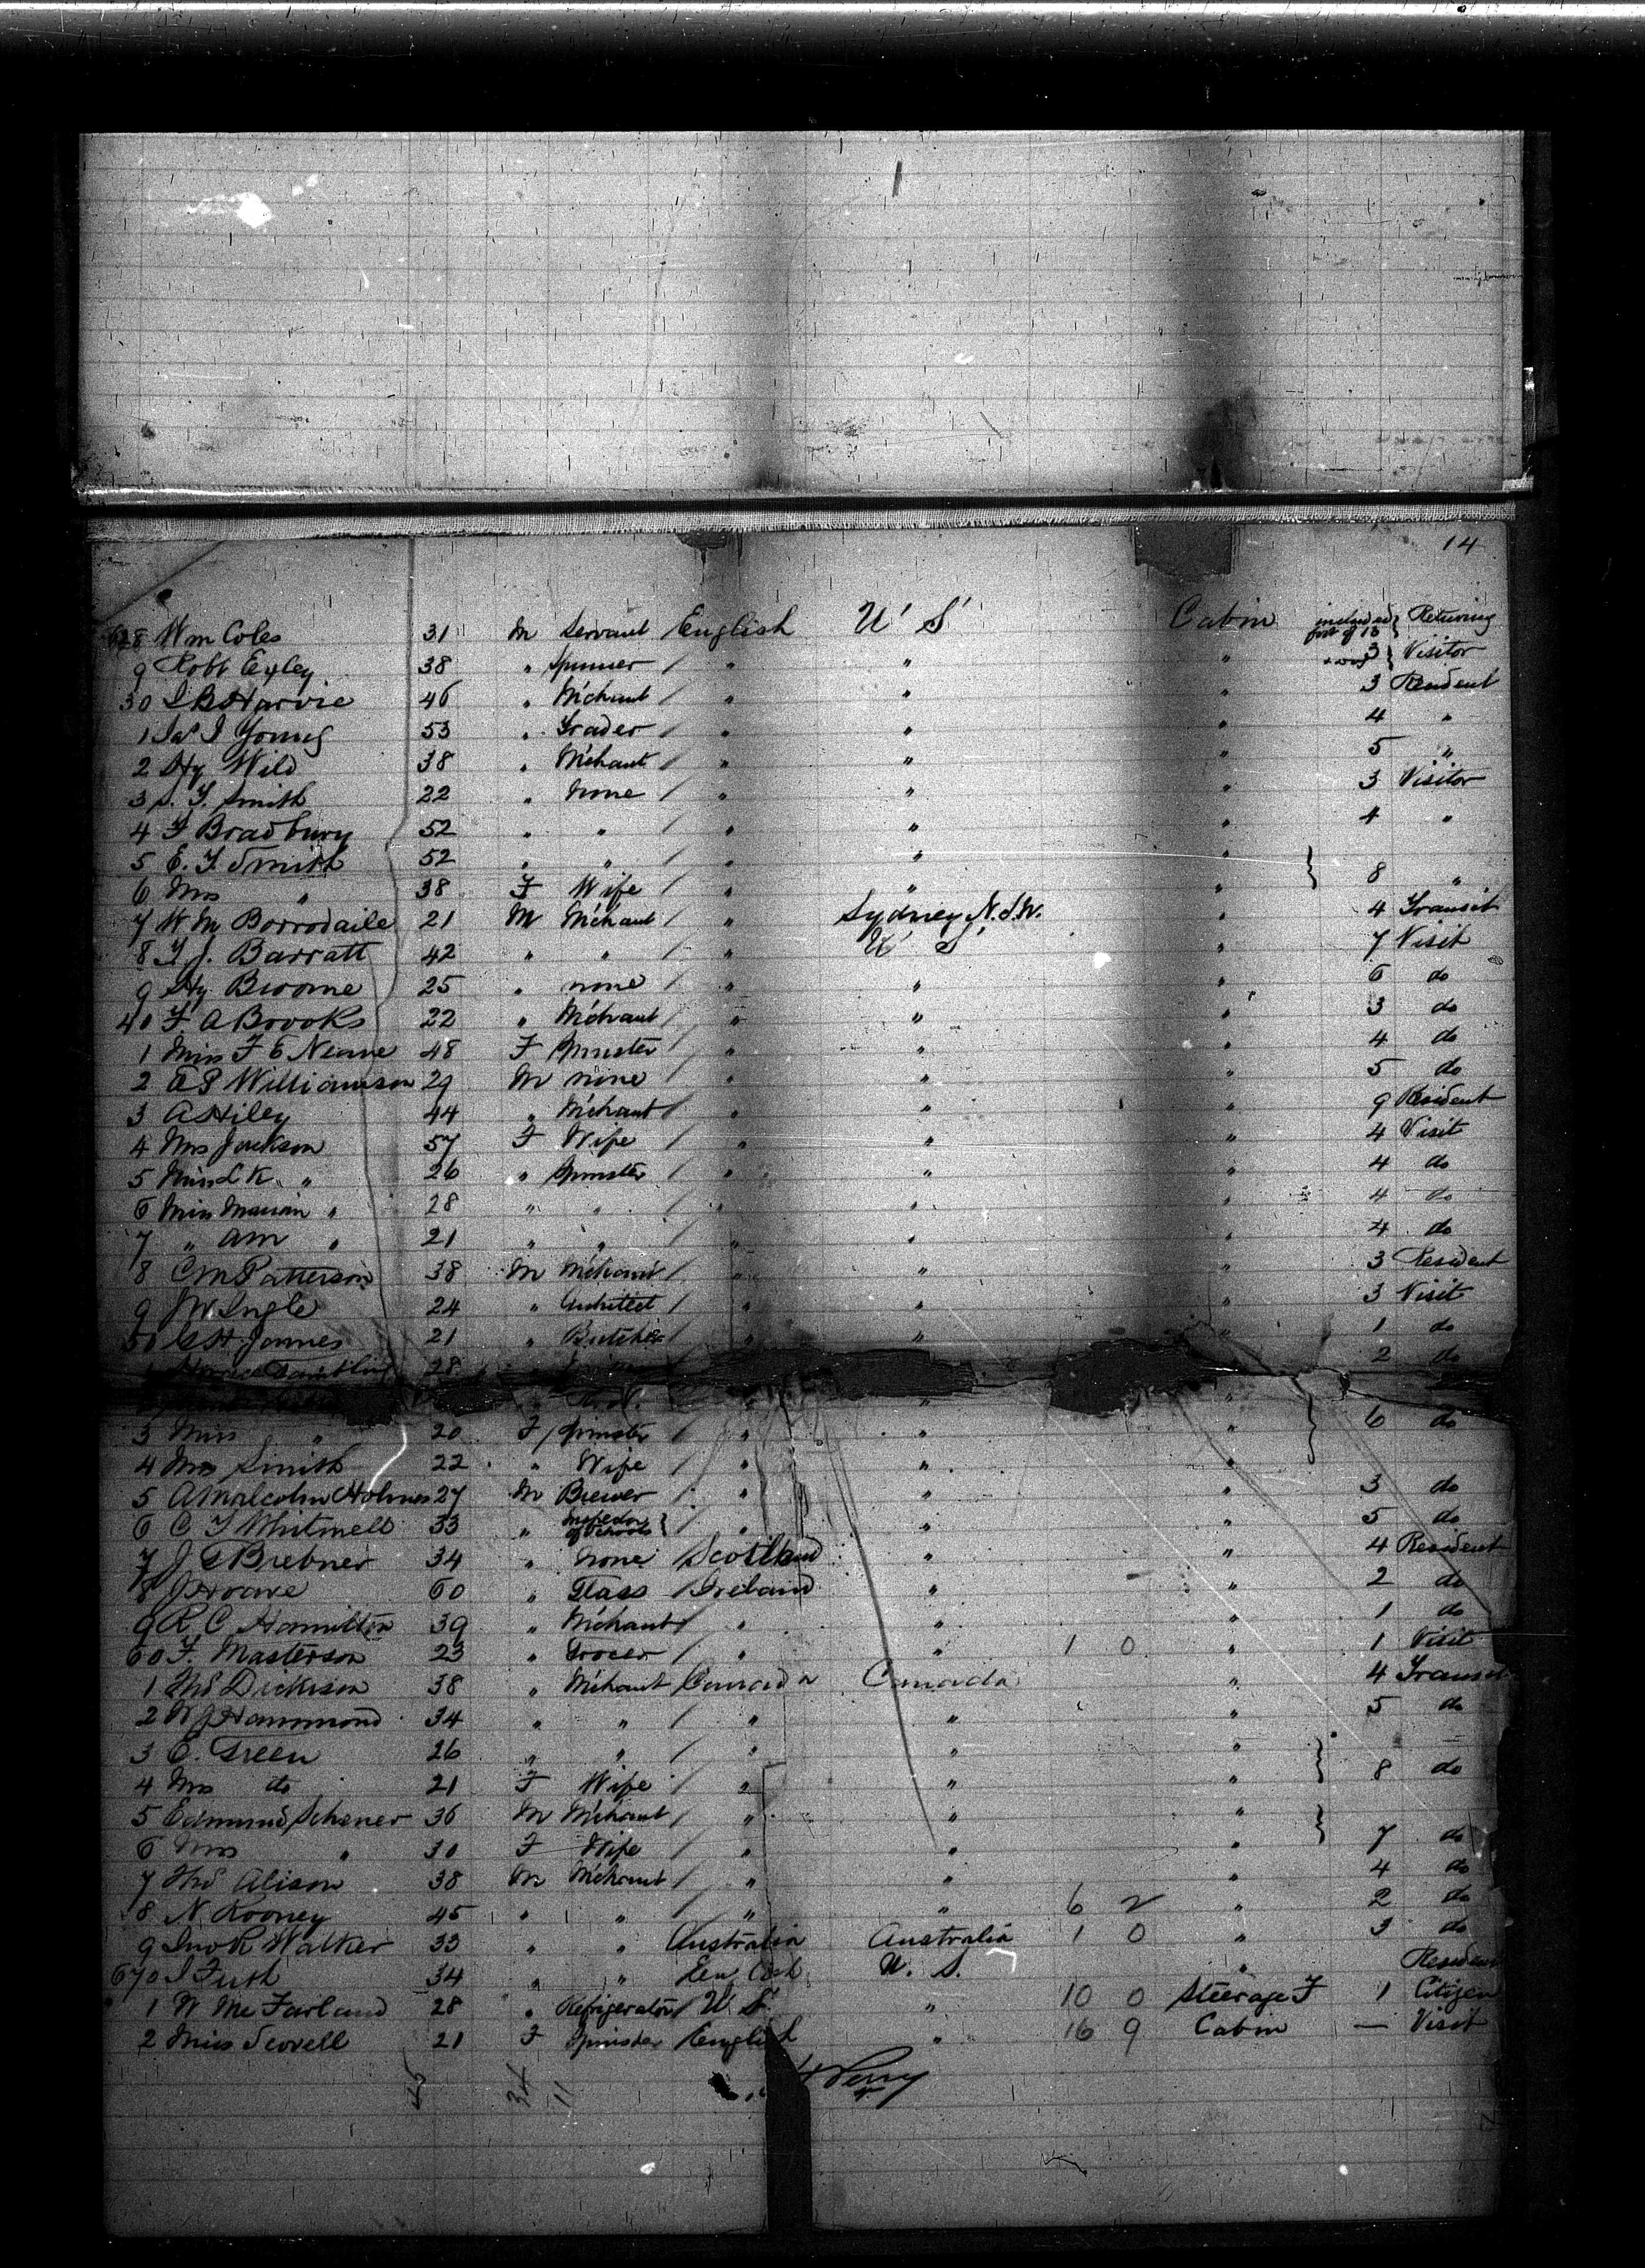 14
628 Wm Coles 31 M Servant English U' S' Cabin included first of 13 } Returning
9 Robt Exley 38 " Spinner / " " " 3 } Visitor
30 J B Harvie 46 " M'chant / " " " 3 Resident
1 Jas J Young 53 " Trader / " " " 4 "
2 Hy Wild 38 " M'chant / " " " 5 "
3 S. Y. Smith 22 " None / " " " 3 Visitor
4 F Bradbury 52 " " / " " " 4 "
5 E. Y. Smith 52 " " / " " "
6 Mrs " 38 F Wife / " " " } 8 "
7 W M Borrodaile 21 M M'chant / " Sydney N.S.W. " 4 Transit
8 T J. Barratt 42 " " / " U' S' " 7 Visit
9 Hy Broome 25 " none / " " " 6 do
40 F A Brooks 22 " M'chant / " " " 3 do
1 Miss F E Neame 48 F Spinster / " " " 4 do
2 A S Williamson 29 M none / " " " 5 do
3 A Hiley 44 " M'chant / " " " 9 Resident
4 Mrs Jackson 57 F Wife / " " " 4 Visit
5 Miss L K. " 26 " Spinster / " " " 4 do
6 Miss Marian " 28 " " / " " " 4 do
7 " AM " 21 " " / " " " 4 do
8 C M Patterson 38 M M'chant / " " " 3 Resident
9 J W Ingle 24 " Architect / " " " 3 Visit
50 G H Jannes 21 " Butcher / " " " 1 do
28 2 do
3 Miss " 20 F Spinster / " " " } 6 do
4 Mrs Smith 22 " Wife / " " "
5 A Malcolm Holmes 27 M Brewer / " " " 3 do
6 C T Whitmell 33 " Inspector of Schools } " " " 5 do
7 J E Brebner 34 " None Scotland " " 4 Resident
8 J Hoare 60 " Glass Ireland " " 2 do
9 R C Hamilton 39 " M'chant / " " " 1 do
60 F. Masterson 23 " Grocer / " " 1 0 " 1 Visit
1 Thos Dickison 38 " M'chant Canada Canada " 4 Transit
2 W J Hammond 34 " " / " " " 5 do
3 C. Green 26 " " / " " "
4 Mrs do 21 F Wife / " " " } 8 do
5 Edmund Schener 36 M M'chant / " " "
6 Mrs " 30 F Wife / " " " } 7 do
7 Thos Alison 38 M M'chant / " " " 4 do
8 N Rooney 45 " " / " " 6 2 " 2 do
9 Jno R Walker 33 " " Australia Australia 1 0 " 3 do
670 J Tush 34 " " U. S. " Resident
" 1 W McFarland 28 " Refrigerator / U. S. " 10 0 Steerage F 1 Citizen
2 Miss Scovell 21 F Spinster English " 16 9 Cabin — Visit
45 34 11 Perry